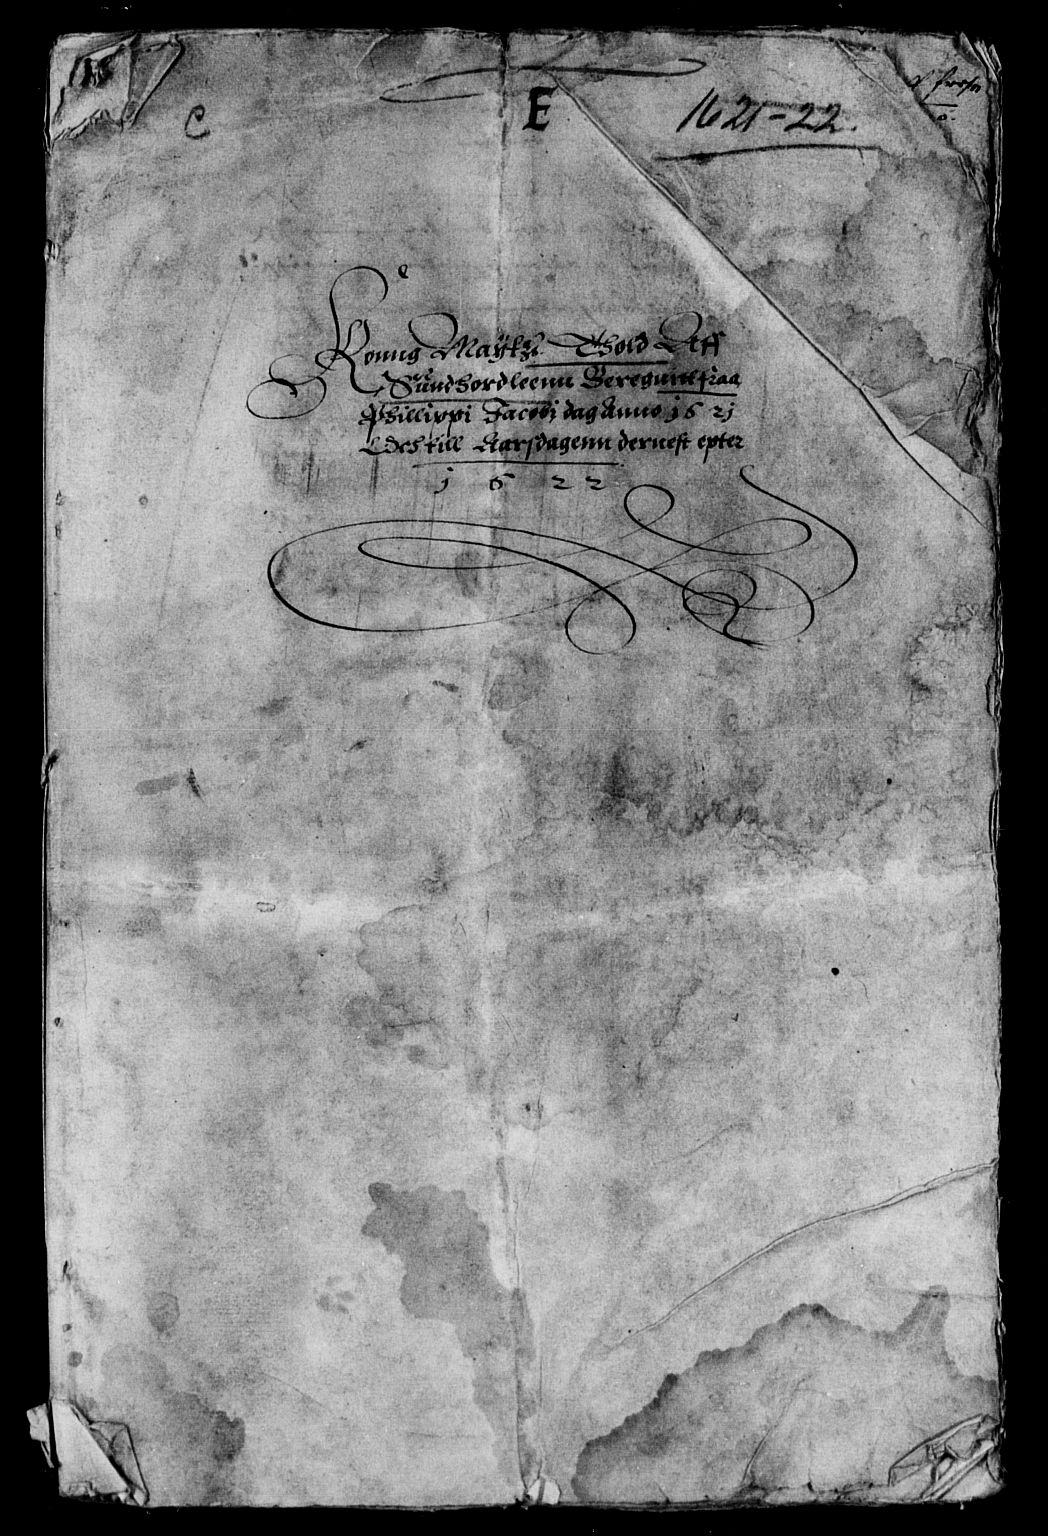 C
E
1621-22.
Konng Maytz. Thold Aff
Sundhordleenn Beregnett fraa
Phillippi Jacobj dag Anno 1621
Och till Aarsdagenn dernest epter
1622